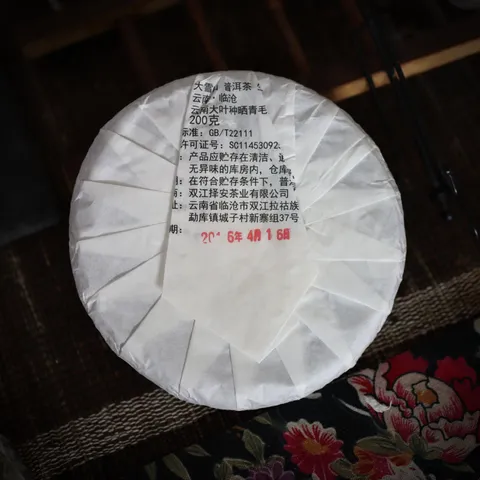 大雪山 普洱茶
云南·临沧
云南大叶种晒青毛
200克
标准：GB/T22111
许可证号：SC11453092
：产品应贮存在清洁、通
无异味的库房内，仓库
：在符合贮存条件下，普洱
：双江择安茶业有限公司
址：云南省临沧市双江拉祜族
勐库镇城子村新寨组37号
期：
2016年4月16日